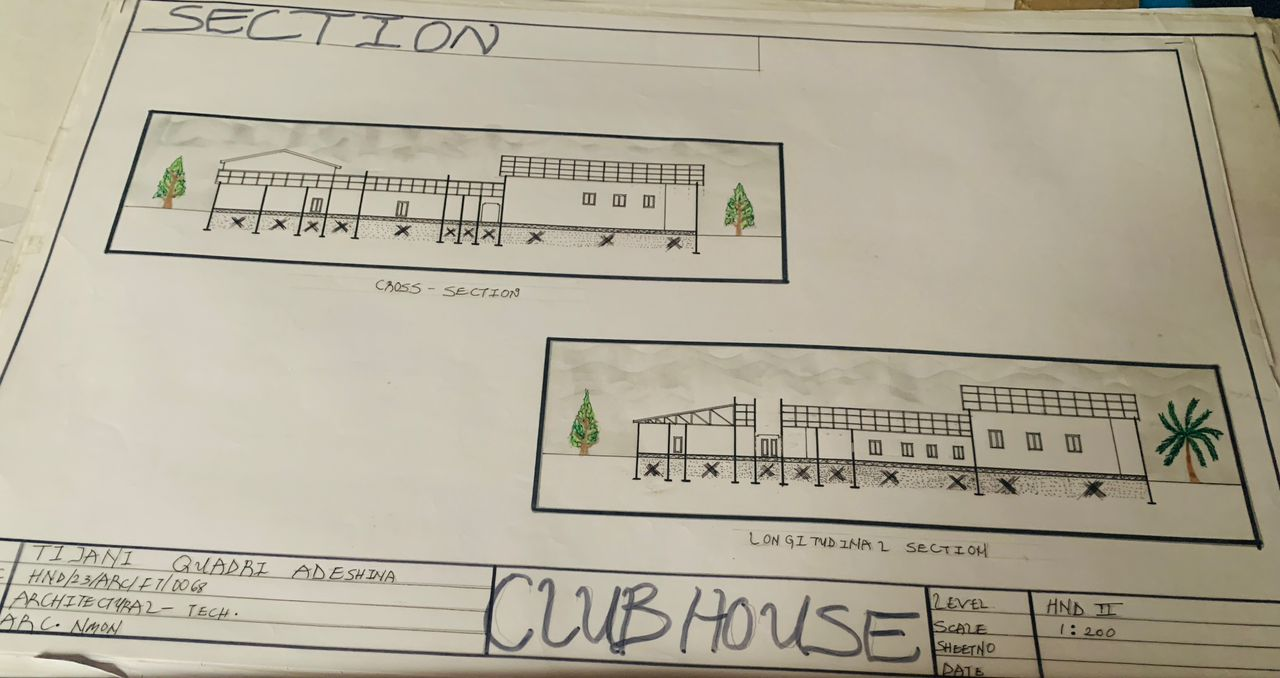 SECTION
CROSS - SECTION
LONGITUDINAL SECTION
TIJANI QUADRI ADESHINA
HND/23/ARC/FT/0068
ARCHITECTURAL - TECH.
ARC. NMON
CLUB HOUSE
LEVEL HND II
SCALE 1:200
SHEET NO
DATE